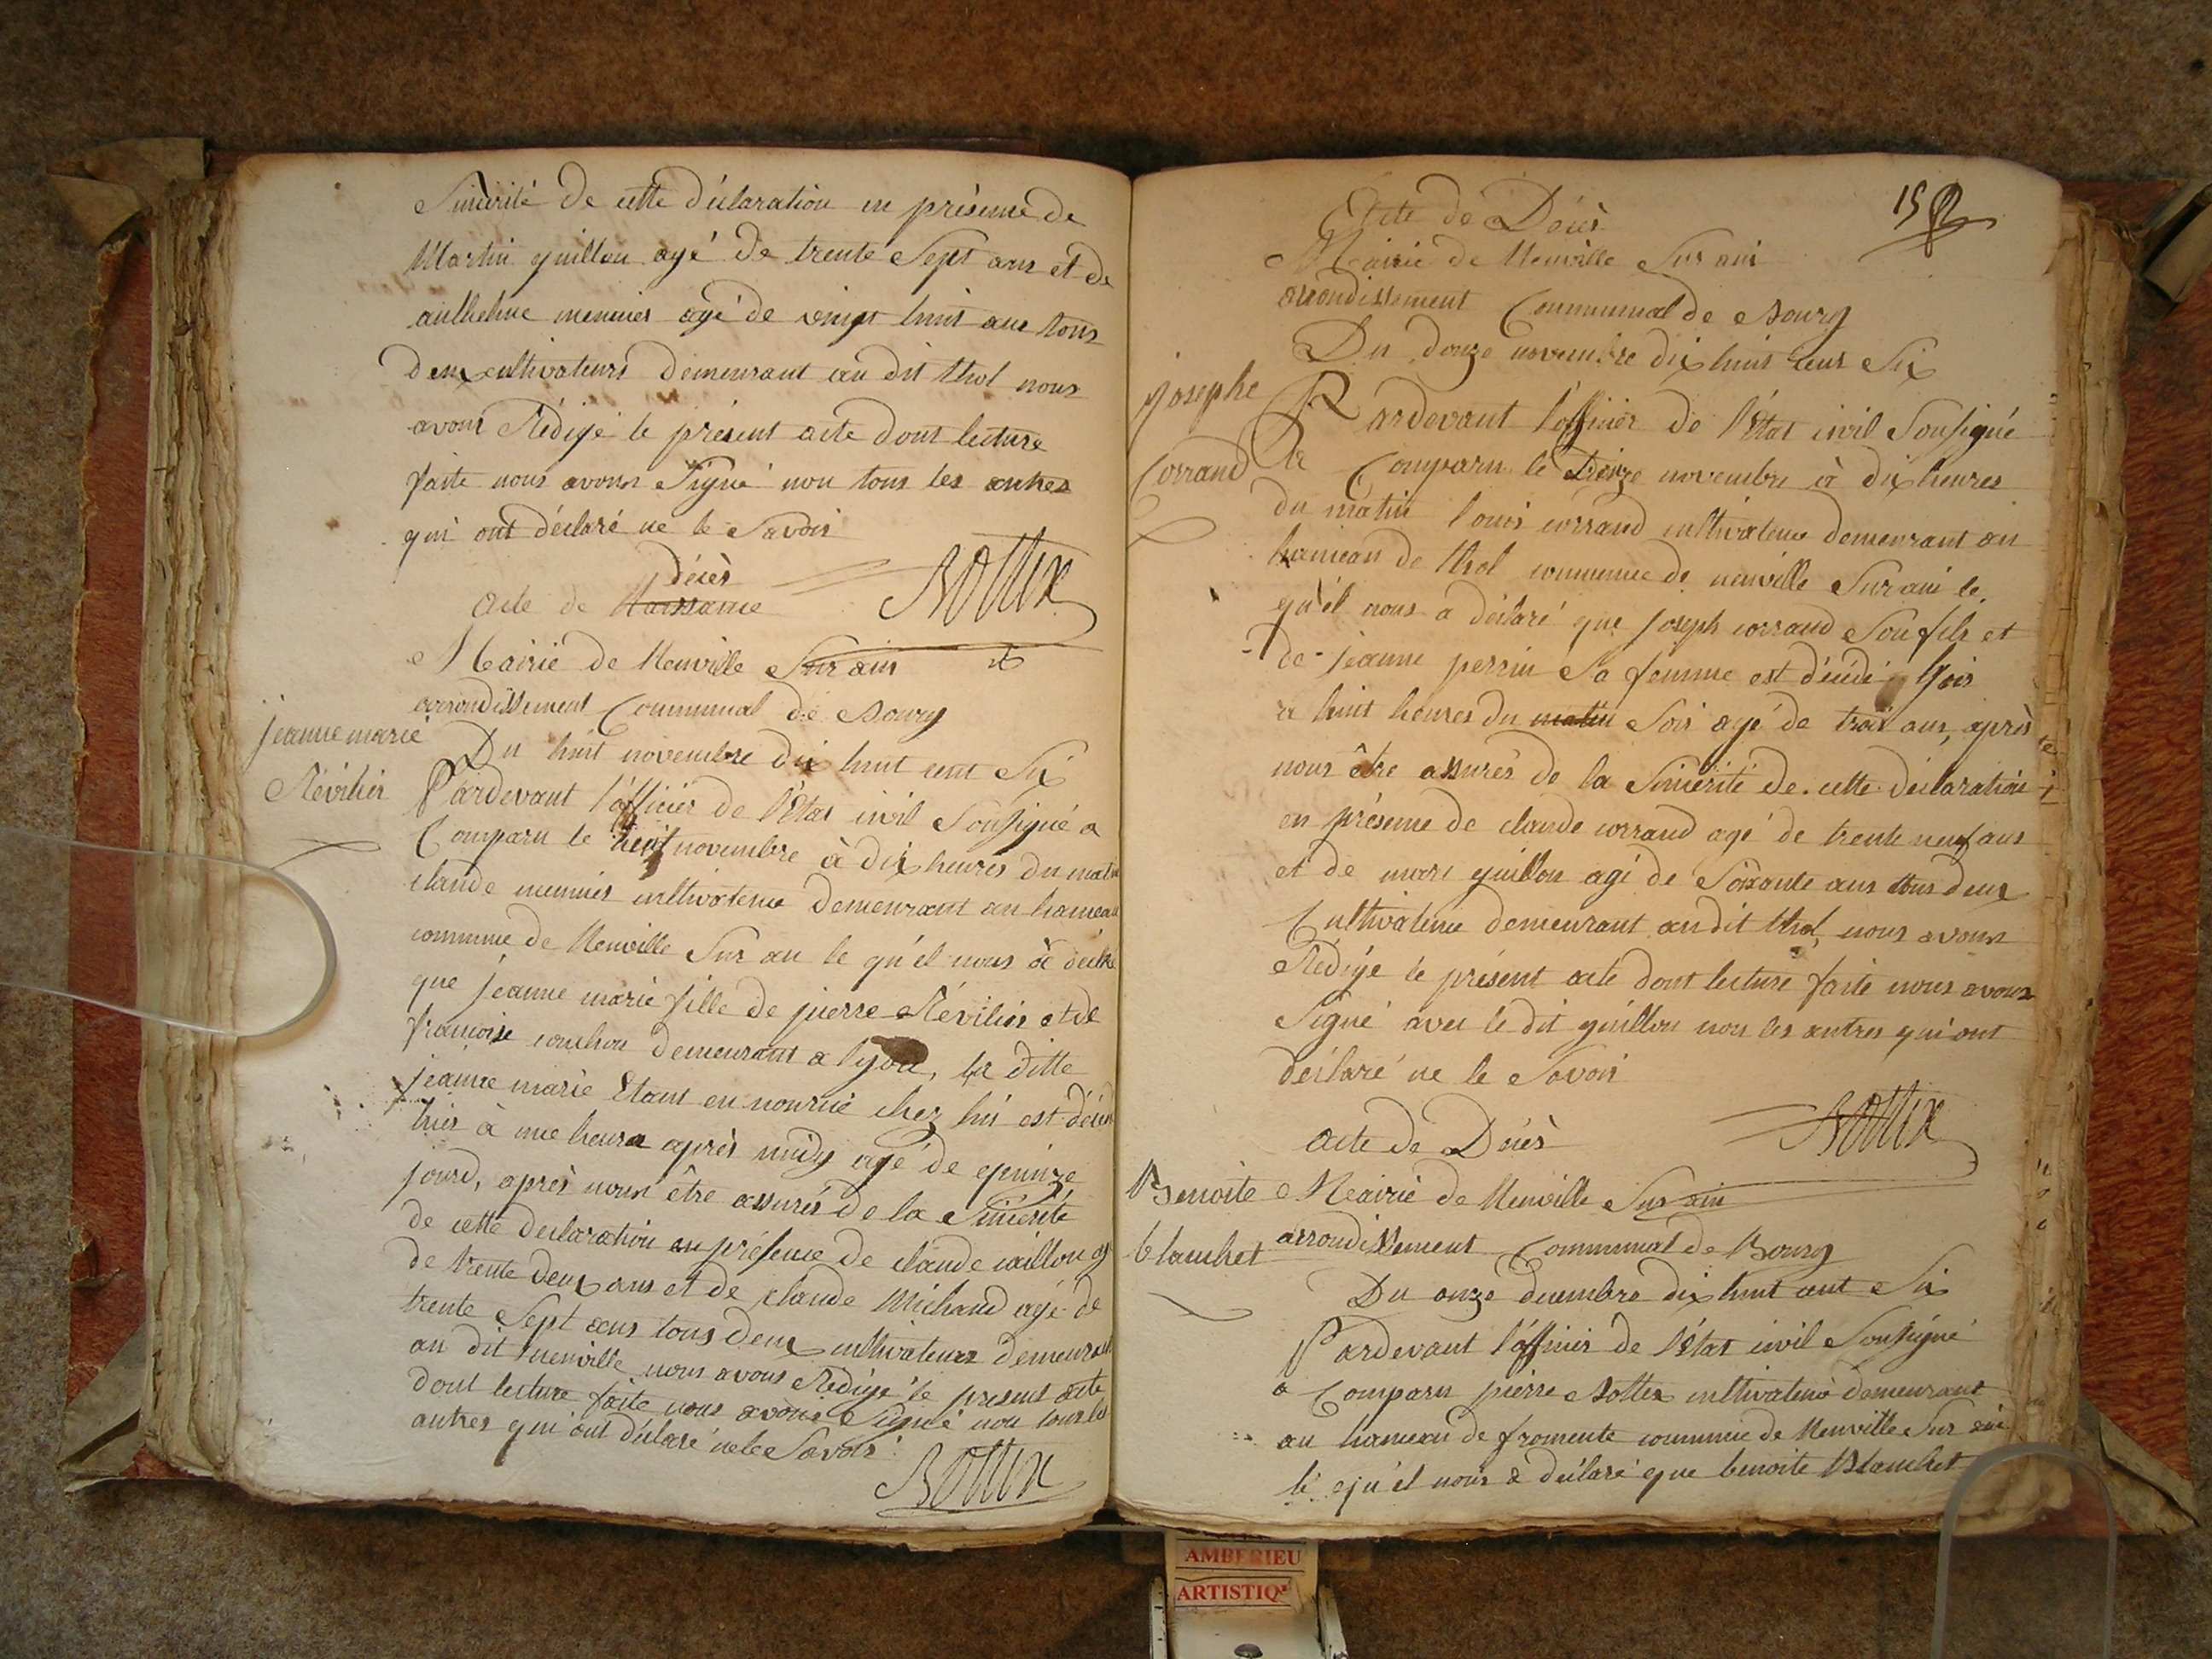 Sincérité de cette déclaration en présence de
Martin guillon agé de trente Sept ans et de
anthelme meunier agé de vingt huit ans tous
deux cultivateurs demeurant au dit thol nous
avons Rédigé le présent acte dont lecture
faite nous avons Signé non tous les autres
qui ont déclaré ne le Savoir
décès
acte de Naissance
Bottex
Mairie de Neuville Sur ain
arrondissement Communal de Bourg
jeanne marie
Révilier
Du huit novembre dix huit cent Six
Pardevant l'officier de l'Etat civil Sousigné a
Comparu le huit novembre à dix heures du matin
claude meunier cultivateur demeurant au hameau
commune de Neuville Sur ain le qu'el nous a déclaré
que jeanne marie fille de pierre Révilier et de
francoise demeurant a lyon, la ditte
jeanne marie Etant en nourice chez lui est décédé
hier à une heure après midy agé de quinze
jours, après nous être assurés de la Sincérité
de cette declaration en présence de claude caillon agé
de trente deux ans et de claude Michaud agé de
trente Sept ans tous deux cultivateurs demeurant
au dit neuville nous avons Rédigé le present acte
dont lecture faite nous avons Signé non tous les
autres qui ont déclaré ne le Savoir
Bottex
15
Acte de Décès
Mairie de Neuville Sur ain
arrondissement Communal de Bourg
Du douze novembre dix huit cent Six
josephe
Corrand
Pardevant l'officier de l'Etat civil Sousigné
a Comparu le douze novembre à dix heures
du matin louis corrand cultivateur demeurant au
hameau de thol commune de neuville Sur ain le
qu'el nous a déclaré que joseph corrand Son fils et
de jeanne perrin Sa femme est décédé hier
a huit heures du matin Soir agé de trois ans, après
nous être assurés de la Sincérité de cette déclaration
en présence de claude corrand agé de trente neuf ans
et de marc guillon agé de Soixante ans tous deux
Cultivateur demeurant au dit thol, nous avons
Rédigé le présent acte dont lecture faite nous avons
Signé avec le dit guillon non les autres qui ont
déclaré ne le Savoir
Bottex
acte de Décès
Benoite
blanchet
Mairie de Neuville Sur ain
arrondissement Communal de Bourg
Du onze decembre dix huit cent Six
Pardevant l'officier de l'Etat civil Sousigné
a Comparu pierre Bottex cultivateur demeurant
au hameau de fromente commune de Neuville Sur ain
le qu'el nous a déclaré que benoite Blanchet
AMBERIEU
ARTISTIQ